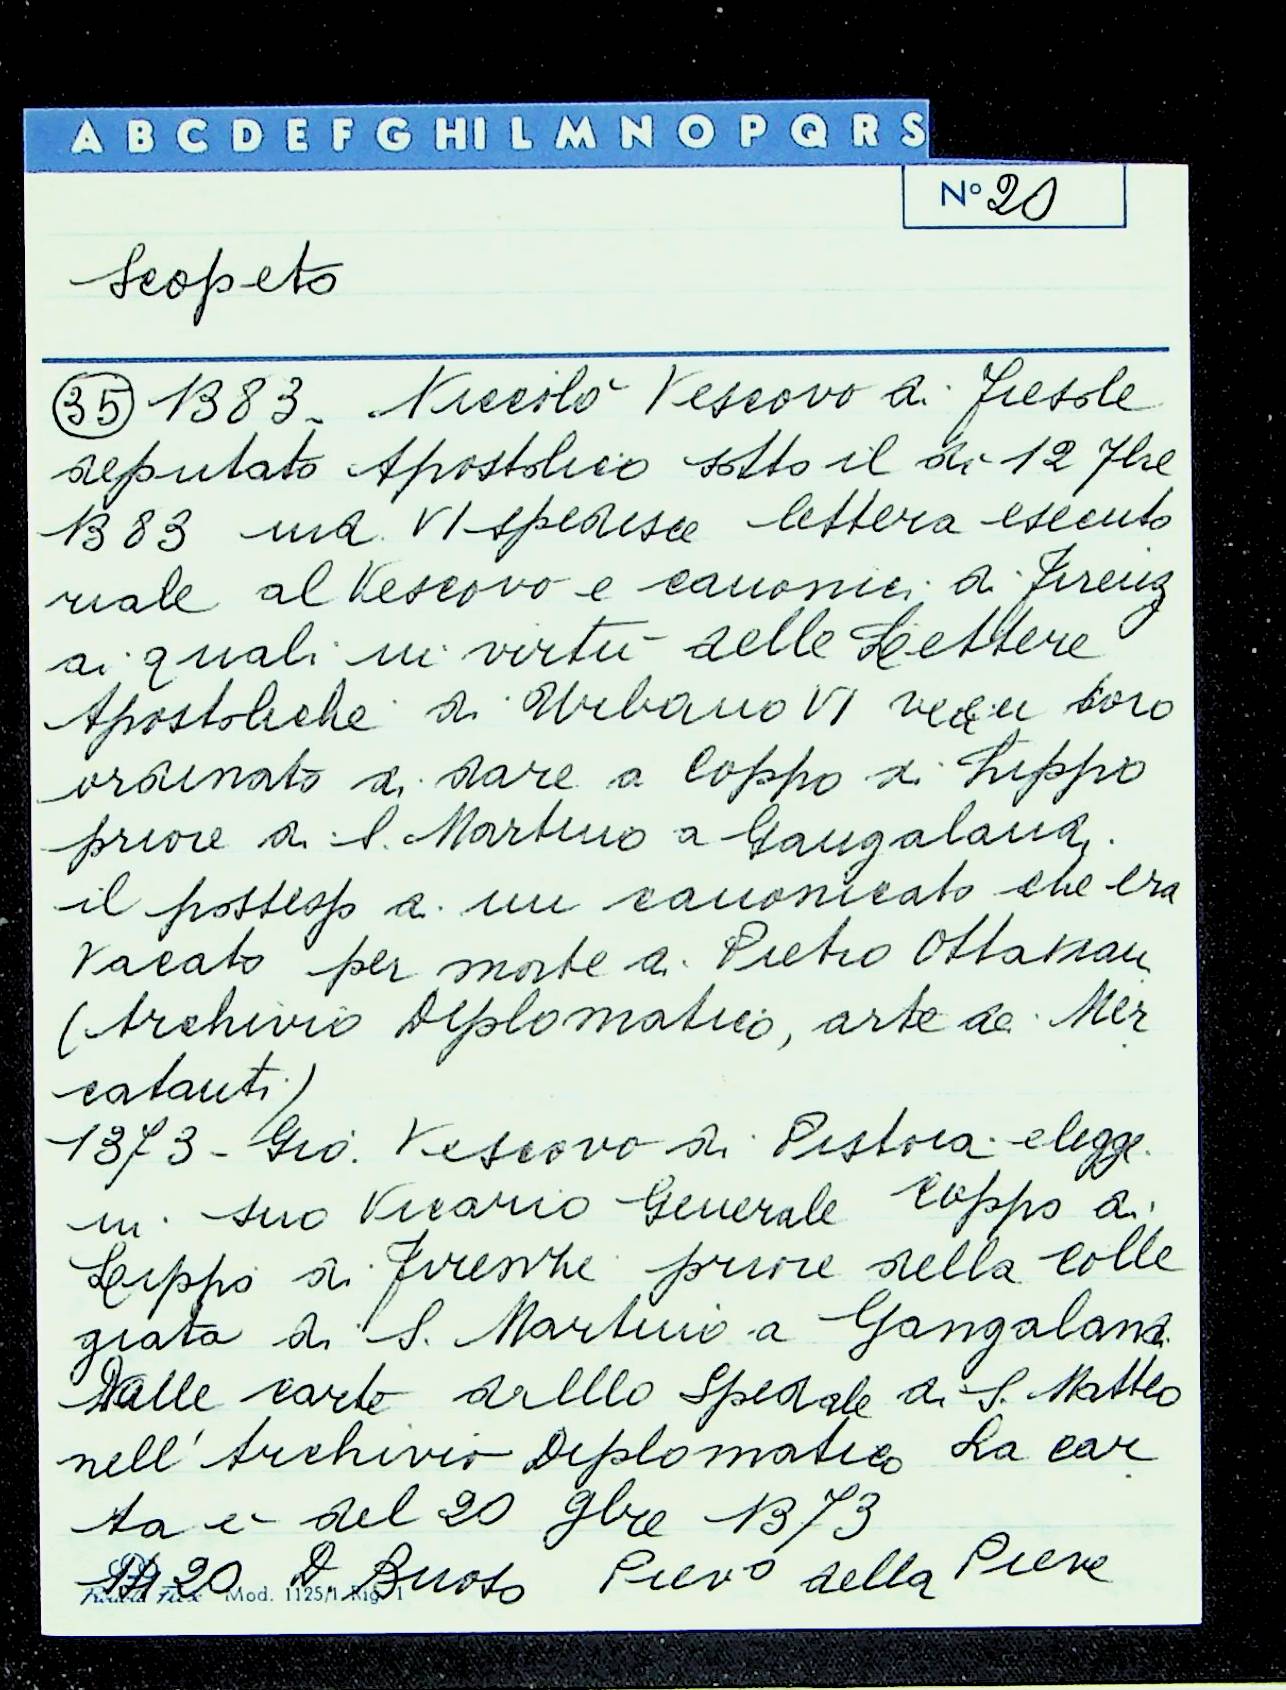 A B C D E F G H I L M N O P Q R S
Nº 20
Scopeto
(35) 1383 - Niccolò Vescovo di Fiesole
deputato Apostolico sotto il dì 12 7bre
1383 ind. VI spedisce lettera esecuto
riale al Vescovo e canonici di Firenz
ai quali in virtù delle Lettere
Apostoliche di Urbano VI loro
ordinato di dare a Coppo di Lippo
priore di S. Martino a Gangaland.
il possesso di un canonicato che era
vacato per morte di Pietro Ottavian
(Archivio Diplomatico, arte de Mer
catanti)
1373 - Gio. Vescovo di Pistoia elegge
in suo Vicario Generale Coppo di
Lippo di Firenze priore della Colle
giata di S. Martino a Gangaland.
Dalle carte dello Spedale di S. Matteo
nell' Archivio Diplomatico La car
ta e del 20 9bre 1373
20 D Buoso Piev° della Pieve
Mod. 1125/1 Rig. 1